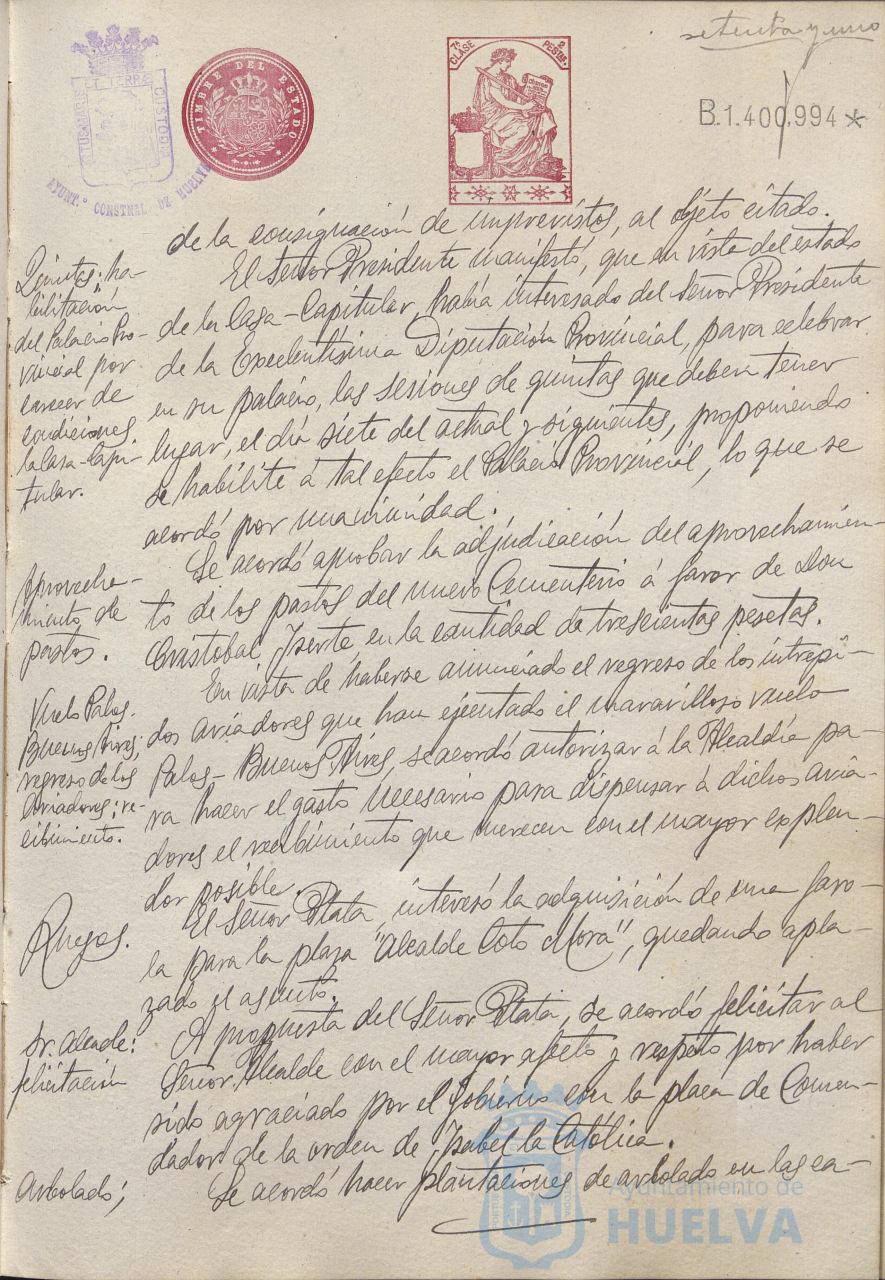 setenta y uno
PORTUS MARIS ET TERRÆ CUSTODIA
AYUNT.º CONSTNAL DE HUELVA
TIMBRE DEL ESTADO
7ª CLASE
2 PESTAS
B.1.400,994*
de la consignación de imprevistos, al objeto citado.
Quintas; ha-
bilitación
del Palacio Pro-
vincial por
carecer de
condiciones
la Casa-Capi-
tular.
El Señor Presidente manifestó, que en vista del estado
de la Casa-Capitular, había interesado del Señor Presidente
de la Excelentísima Diputación Provincial, para celebrar
en su palacio, las sesiones de quintas que deberá tener
lugar, el día siete del actual y siguientes, proponiendo
se habilite á tal efecto el Palacio Provincial, lo que se
acordó por unanimidad.
Aprovecha-
miento de
pastos.
Se acordó aprobar la adjudicación del aprovechamien-
to de los pastos del nuevo Cementerio á favor de Don
Cristobal Iserte, en la cantidad de trescientas pesetas.
Vuelo Palos-
Buenos Aires;
regreso de los
aviadores; re-
cibimiento.
En vista de haberse anunciado el regreso de los intrépi-
dos aviadores que han ejecutado el maravilloso vuelo
Palos-Buenos Aires, se acordó autorizar á la Alcaldía pa-
ra hacer el gasto necesario para dispensar á dichos avia-
dores el recibimiento que merecen con el mayor explen-
dor posible.
Ruegos.
El Señor Plata, interesó la adquisición de una faro-
la para la plaza "Alcalde Coto Mora", quedando apla-
zado el asunto.
Sr. Alcalde:
felicitación
A propuesta del Señor Plata, se acordó felicitar al
Señor Alcalde con el mayor afecto y respeto por haber
sido agraciado por el Gobierno con la placa de Comen-
dador de la orden de Isabel la Católica.
Arbolado;
Se acordó hacer plantaciones de arbolado en las ca-
Ayuntamiento de
HUELVA